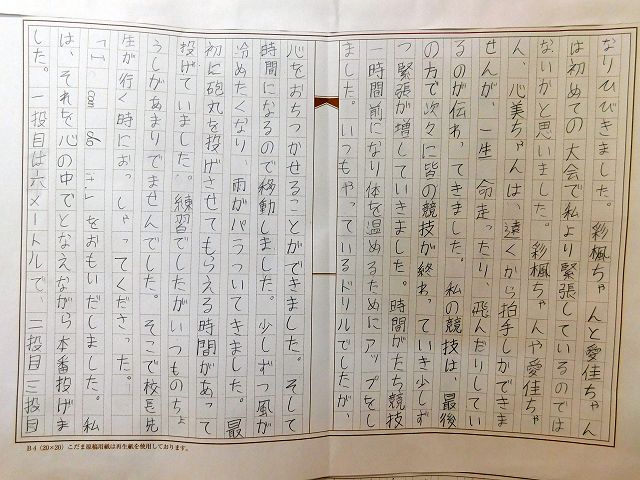 なりひびきました。彩楓ちゃんと愛佳ちゃん
は初めての大会で私より緊張しているのでは
ないかと思いました。彩楓ちゃんや愛佳ちゃ
ん、心美ちゃんは、遠くから拍手しかできま
せんが、一生 命走ったり、飛んだりしてい
るのが伝わってきました。私の競技は、最後
の方で次々に皆の競技が終わっていき少しず
つ緊張が増していきました。時間がたち競技
一時間前になり体を温めるためにアップをし
ました。いつもやっているドリルでしたが、
心をおちつかせることができました。そして
時間になるので移動しました。少しずつ風が
冷めたくなり、雨がパラついてきました。最
初に砲丸を投げさせてもらえる時間があって
投げていました。練習でしたがいつものちょ
うしがあまりでませんでした。そこで校長先
生が行く時におっしゃってくださった。
をおもいだしました。私
は、それを心の中でとなえながら本番投げま
した。一投目は六メートルで、二投目三投目
B4(20×20)こだま原稿用紙は再生紙を使用しております。